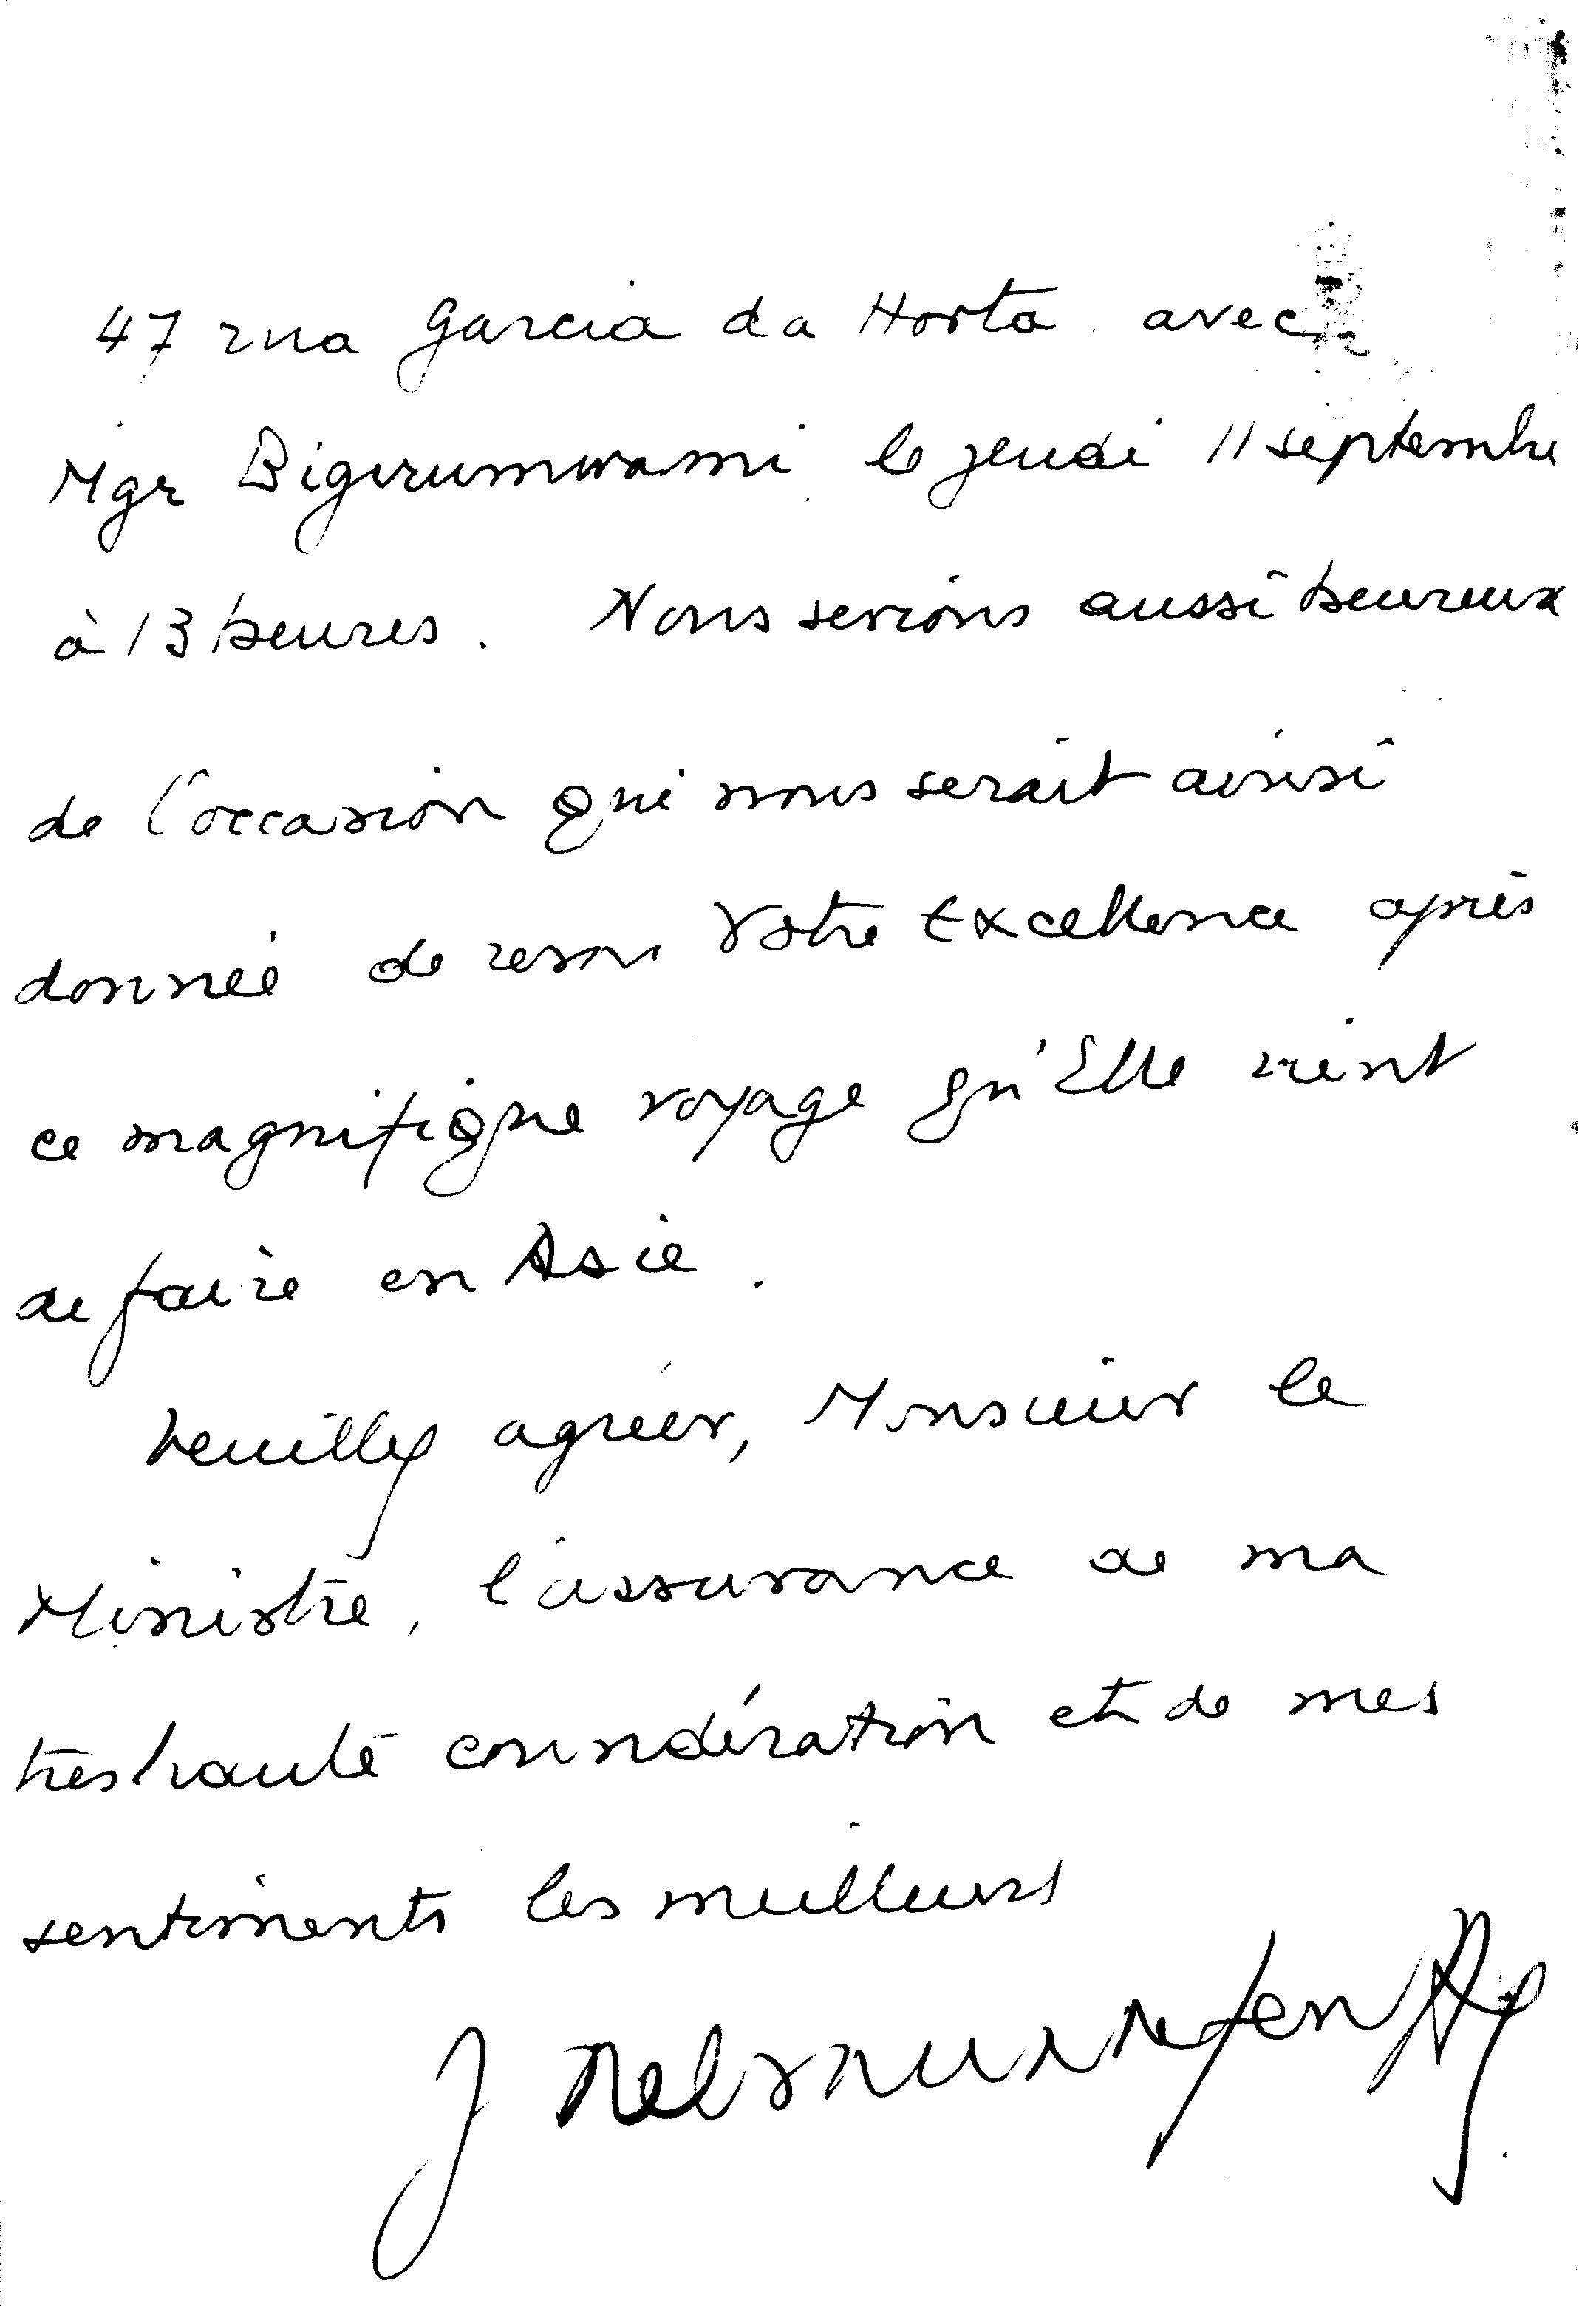 47 rua Garcia da Horta avec
Mgr Bigirumwami le jeudi 11 septembre
à 13 heures. Nous serions aussi heureux
de l'occasion qui nous serait ainsi
donnée de revoir Votre Excellence après
ce magnifique voyage qu'Elle vient
de faire en Asie.
Veuillez agréer, Monsieur le
Ministre, l'assurance de ma
très haute considération et de mes
sentiments les meilleurs
J